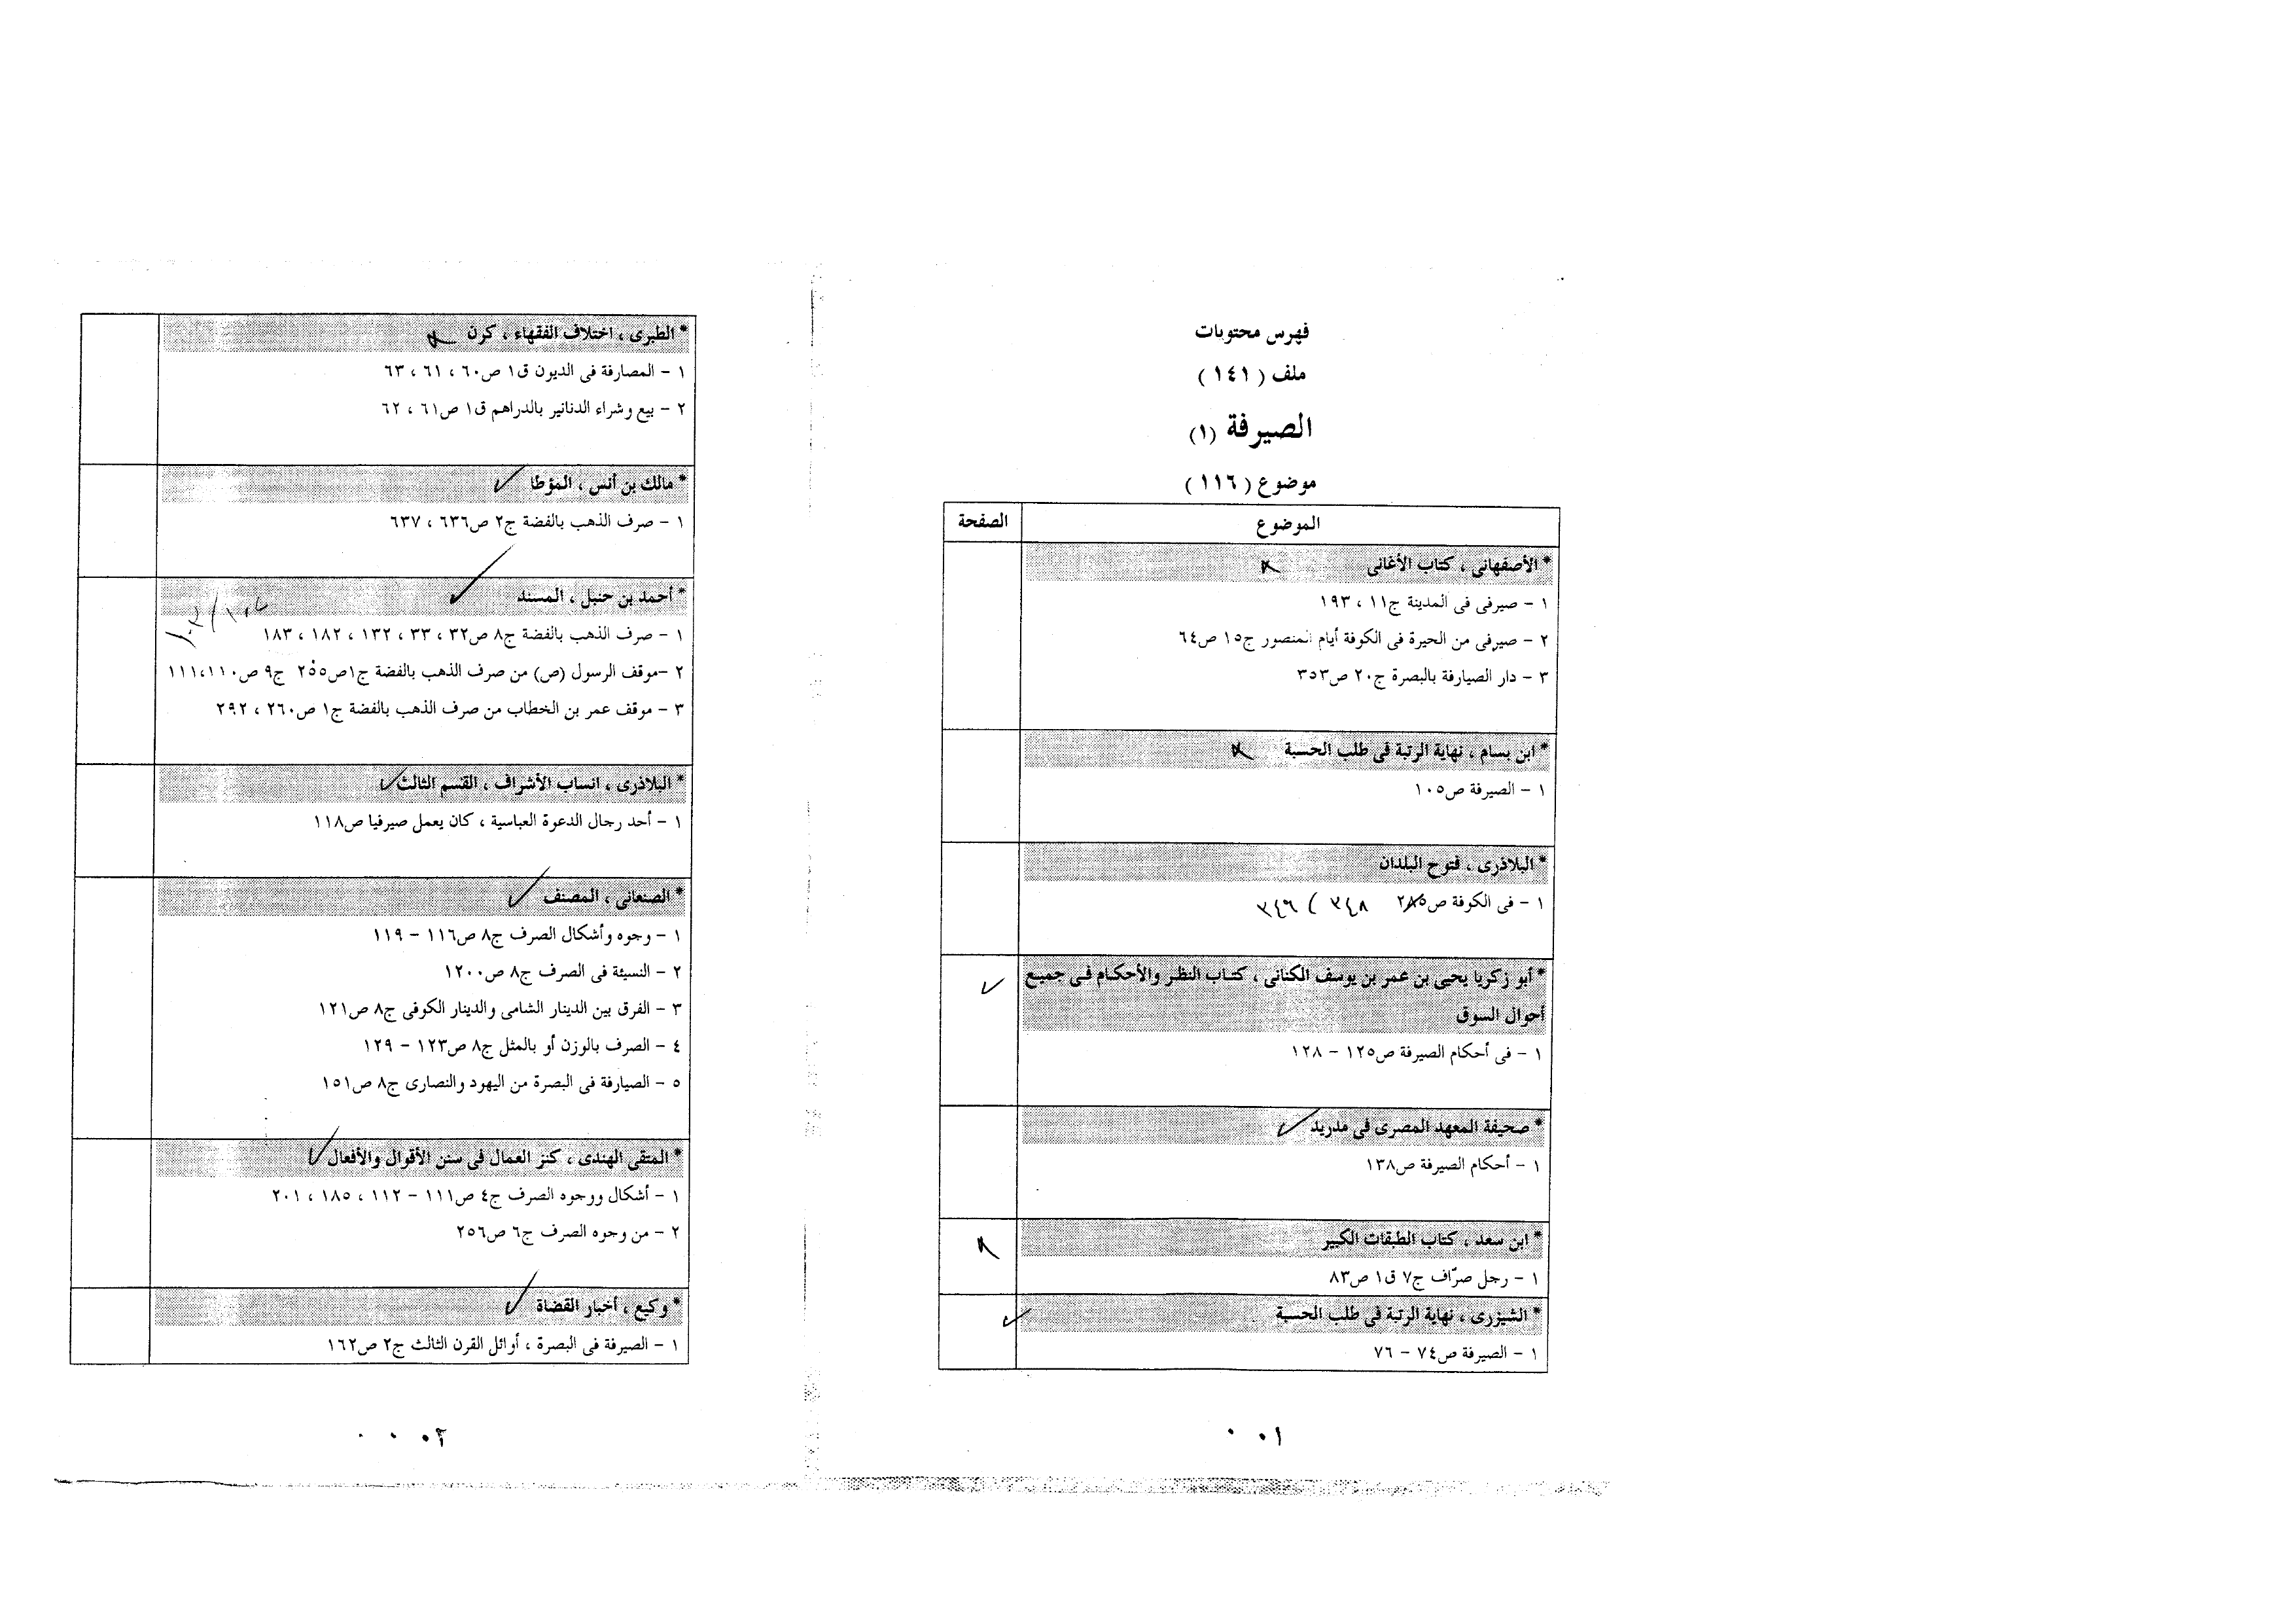 فهرس محتويات
ملف ( ١٤١ )
الصيرفة (١)
موضوع ( ١١٦ )
الموضوع الصفحة
* الأصفهانى ، كتاب الأغانى
١ - صيرفى فى المدينة ج١١ ، ١٩٣
٢ - صيرفى من الحيرة فى الكوفة أيام المنصور ج١٥ ص٦٤
٣ - دار الصيارفة بالبصرة ج٢٠ ص٣٥٣
* ابن بسام ، نهاية الرتبة فى طلب الحسبة
١ - الصيرفة ص١٠٥
* البلاذرى ، فتوح البلدان
١ - فى الكوفة ص٢٨٥ ٣٤٨ ( ٣٤٦
* أبو زكريا يحيى بن عمر بن يوسف الكنانى ، كتاب النظر والأحكام فى جميع
أحوال السوق
١ - فى أحكام الصيرفة ص١٢٥ - ١٢٨
* صحيفة المعهد المصرى فى مدريد
١ - أحكام الصيرفة ص١٣٨
* ابن سعد ، كتاب الطبقات الكبير
١ - رجل صرّاف ج٧ ق١ ص٨٣
* الشيزرى ، نهاية الرتبة فى طلب الحسبة
١ - الصيرفة ص٧٤ - ٧٦
٠ ٠١
* الطبرى ، اختلاف الفقهاء ، كرن
١ - المصارفة فى الديون ق١ ص٦٠ ، ٦١ ، ٦٣
٢ - بيع وشراء الدنانير بالدراهم ق١ ص٦١ ، ٦٢
* مالك بن أنس ، المؤطا
١ - صرف الذهب بالفضة ج٢ ص٦٣٦ ، ٦٣٧
* أحمد بن حنبل ، المسند
١ - صرف الذهب بالفضة ج٨ ص٣٢ ، ٣٣ ، ١٣٢ ، ١٨٢ ، ١٨٣
٢ -موقف الرسول (ص) من صرف الذهب بالفضة ج١ص٢٥٥ ج٩ ص١١٠،١١١
٣ - موقف عمر بن الخطاب من صرف الذهب بالفضة ج١ ص٢٦٠ ، ٢٩٢
* البلاذرى ، انساب الأشراف ، القسم الثالث
١ - أحد رجال الدعوة العباسية ، كان يعمل صيرفيا ص١١٨
* الصنعانى ، المصنف
١ - وجوه وأشكال الصرف ج٨ ص١١٦ - ١١٩
٢ - النسيئة فى الصرف ج٨ ص١٢٠٠
٣ - الفرق بين الدينار الشامى والدينار الكوفى ج٨ ص١٢١
٤ - الصرف بالوزن أو بالمثل ج٨ ص١٢٣ - ١٢٩
٥ - الصيارفة فى البصرة من اليهود والنصارى ج٨ ص١٥١
* المتقى الهندى ، كنز العمال فى سنن الأقوال والأفعال
١ - أشكال ووجوه الصرف ج٤ ص١١١ - ١١٢ ، ١٨٥ ، ٢٠١
٢ - من وجوه الصرف ج٦ ص٢٥٦
* وكيع ، أخبار القضاة
١ - الصيرفة فى البصرة ، أوائل القرن الثالث ج٢ ص١٦٢
٠ ٠ ٠٢